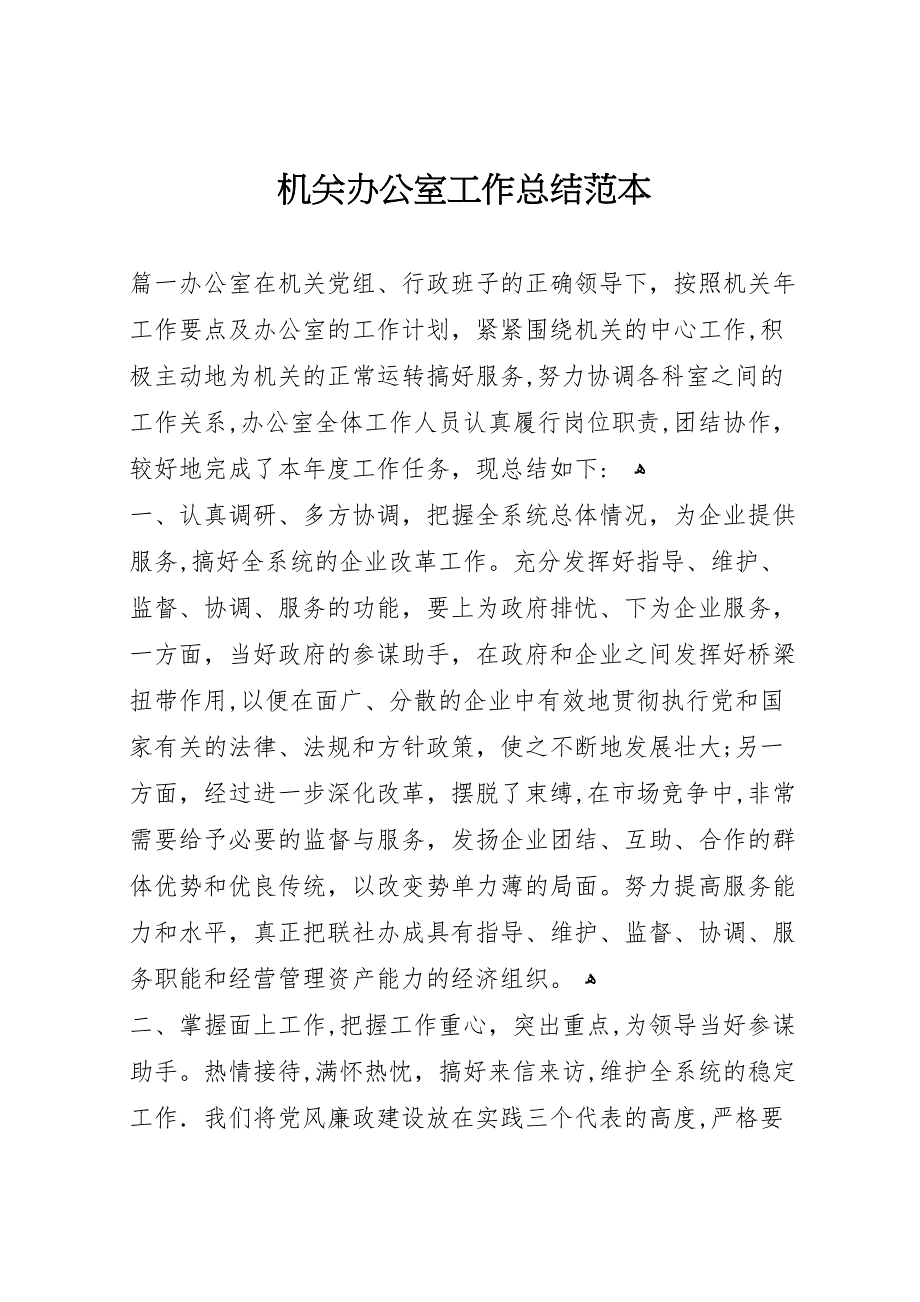 机关办公室工作总结范本
篇一办公室在机关党组、行政班子的正确领导下，按照机关年
工作要点及办公室的工作计划，紧紧围绕机关的中心工作,积
极主动地为机关的正常运转搞好服务,努力协调各科室之间的
工作关系,办公室全体工作人员认真履行岗位职责,团结协作，
较好地完成了本年度工作任务，现总结如下： ﻫ
一、认真调研、多方协调，把握全系统总体情况，为企业提供
服务,搞好全系统的企业改革工作。充分发挥好指导、维护、
监督、协调、服务的功能，要上为政府排忧、下为企业服务，
一方面，当好政府的参谋助手，在政府和企业之间发挥好桥梁
扭带作用,以便在面广、分散的企业中有效地贯彻执行党和国
家有关的法律、法规和方针政策，使之不断地发展壮大;另一
方面，经过进一步深化改革，摆脱了束缚,在市场竞争中,非常
需要给予必要的监督与服务，发扬企业团结、互助、合作的群
体优势和优良传统，以改变势单力薄的局面。努力提高服务能
力和水平，真正把联社办成具有指导、维护、监督、协调、服
务职能和经营管理资产能力的经济组织。 ﻫ
二、掌握面上工作,把握工作重心，突出重点,为领导当好参谋
助手。热情接待,满怀热忱，搞好来信来访,维护全系统的稳定
工作．我们将党风廉政建设放在实践三个代表的高度,严格要